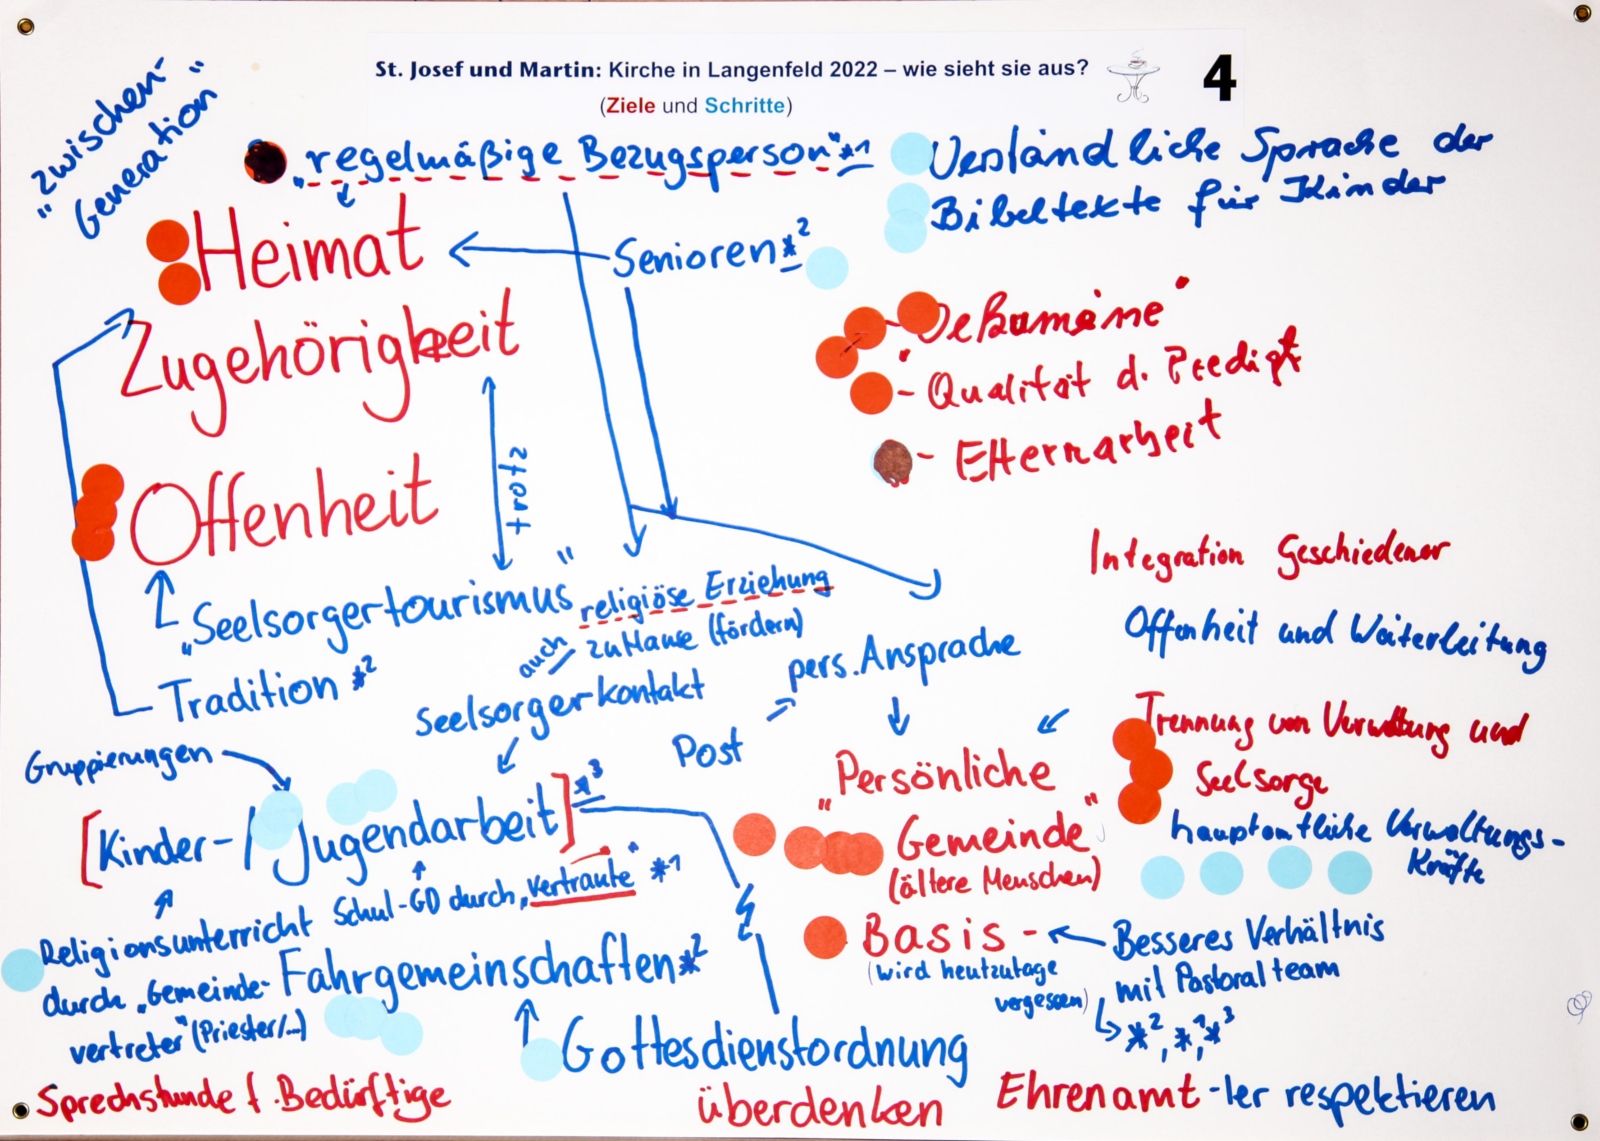 St. Josef und Martin: Kirche in Langenfeld 2022 – wie sieht sie aus?
(Ziele und Schritte)
4
"zwischen-
Generation"
„regelmäßige Bezugsperson"*1
Verständliche Sprache der
Bibeltexte für Kinder
Heimat
Senioren*2
Zugehörigkeit
- „Oekumene"
- Qualität d. Predigt
- Elternarbeit
trotz
Offenheit
Integration Geschiedener
„Seelsorgertourismus"
religiöse Erziehung
auch zuHause (fördern)
Offenheit und Weiterleitung
Tradition *2
Seelsorgerkontakt
pers. Ansprache
Post
Trennung von Verwaltung und
Seelsorge
Gruppierungen
[Kinder-/Jugendarbeit]*3
„Persönliche
Gemeinde"
(ältere Menschen)
hauptamtliche Verwaltungs-
Kräfte
Schul-GD durch „Vertraute" *1
Religionsunterricht
durch „Gemeinde-
vertreter" (Priester/...)
Fahrgemeinschaften*2
Basis -
(wird heutzutage
vergessen)
Besseres Verhältnis
mit Pastoralteam
*2, *1, *3
Gottesdienstordnung
überdenken
Sprechstunde f. Bedürftige
Ehrenamt-ler respektieren